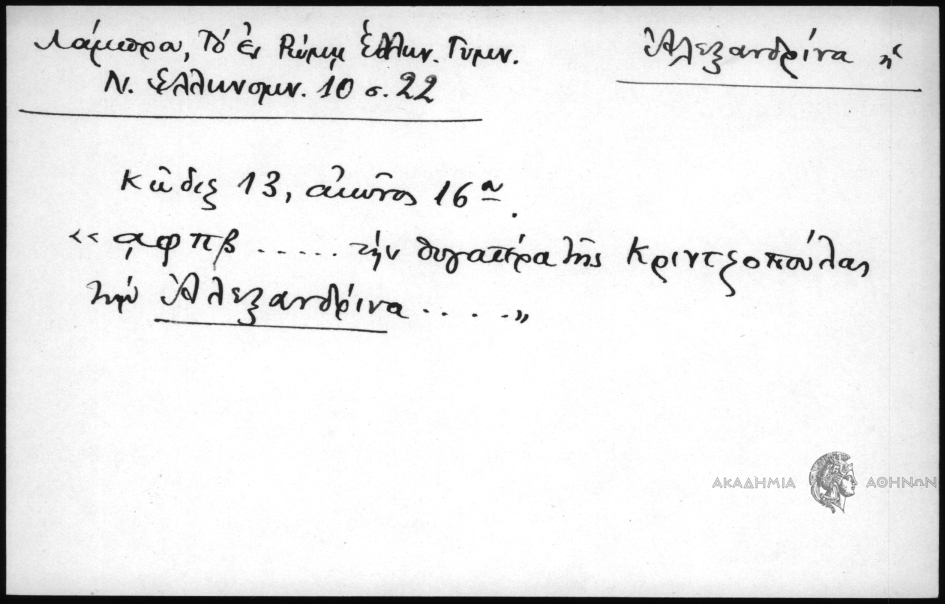 Λάμπρου, Τὸ ἐν Ρώμῃ Ἑλλην. Γυμν.
Ν. Ἑλληνομν. 10 σ. 22
Ἀλεξανδρίνα ἡ
Κῶδιξ 13, αἰῶνος 16ου.
«͵αφπβ ..... τὴν θυγατέρα τῆς Κριντζοπούλας
τὴν Ἀλεξανδρίνα ....»
ΑΚΑΔΗΜΙΑ ΑΘΗΝΩΝ